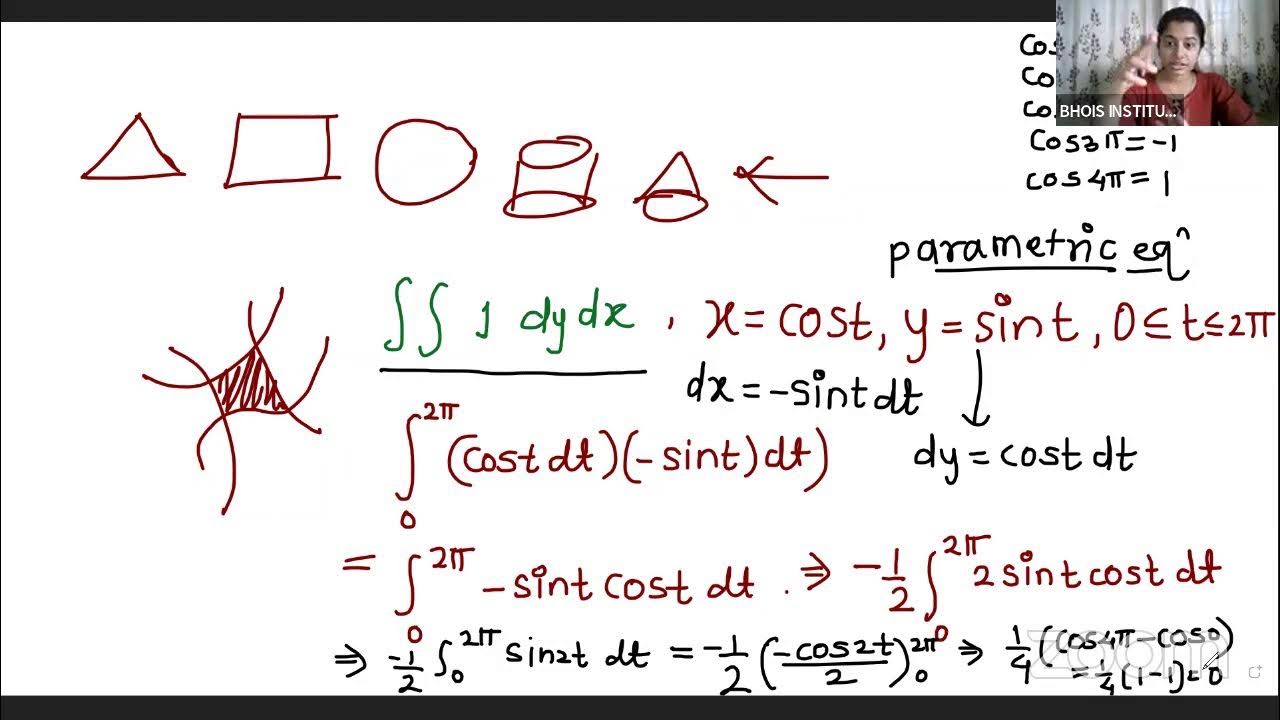 BHOIS INSTITU...
cos3π = -1
cos4π = 1
parametric eqⁿ
∫∫ 1 dy dx , x = cost, y = sint, 0 ≤ t ≤ 2π
dx = -sint dt
dy = cost dt
∫₀^2π (cost dt)(-sint) dt)
= ∫₀^2π -sint cost dt . ⇒ -1/2 ∫₀^2π 2 sint cost dt
⇒ -1/2 ∫₀^2π sin2t dt = -1/2 (-cos2t/2)₀^2π ⇒ 1/4 (cos4π - cos0)
= 1/4 (1-1) = 0
zoom